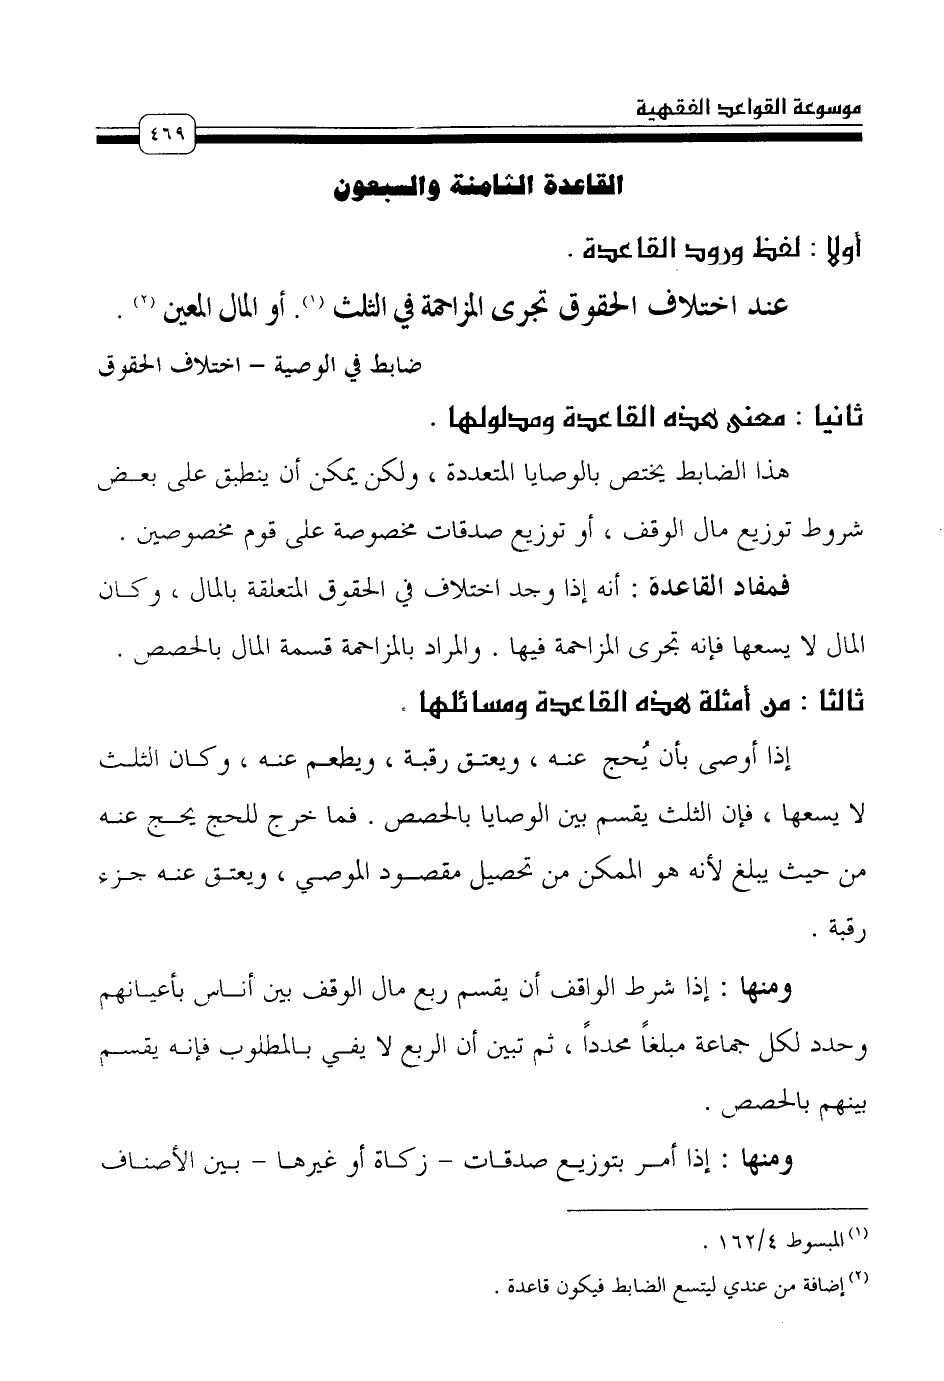 موسوعة القواعد الفقهية
٤٦٩
القاعدة الثامنة والسبعون
أولا : لفظ ورود القاعدة .
عند اختلاف الحقوق تجرى المزاحمة في الثلث (١). أو المال المعين (٢) .
ضابط في الوصية – اختلاف الحقوق
ثانيا : معنى هذه القاعدة ومدلولها .
هذا الضابط يختص بالوصايا المتعددة ، ولكن يمكن أن ينطبق على بعض
شروط توزيع مال الوقف ، أو توزيع صدقات مخصوصة على قوم مخصوصين .
فمفاد القاعدة : أنه إذا وجد اختلاف في الحقوق المتعلقة بالمال ، وكان
المال لا يسعها فإنه تجرى المزاحمة فيها . والمراد بالمزاحمة قسمة المال بالحصص .
ثالثا : من أمثلة هذه القاعدة ومسائلها .
إذا أوصى بأن يُحج عنه ، ويعتق رقبة ، ويطعم عنه ، وكان الثلث
لا يسعها ، فإن الثلث يقسم بين الوصايا بالحصص . فما خرج للحج يحج عنه
من حيث يبلغ لأنه هو الممكن من تحصيل مقصود الموصي ، ويعتق عنه جزء
رقبة .
ومنها : إذا شرط الواقف أن يقسم ربع مال الوقف بين أناس بأعيانهم
وحدد لكل جماعة مبلغاً محدداً ، ثم تبين أن الربع لا يفي بالمطلوب فإنه يقسم
بينهم بالحصص .
ومنها : إذا أمر بتوزيع صدقات – زكاة أو غيرها – بين الأصناف
(١) المبسوط ١٦٢/٤ .
(٢) إضافة من عندي ليتسع الضابط فيكون قاعدة .